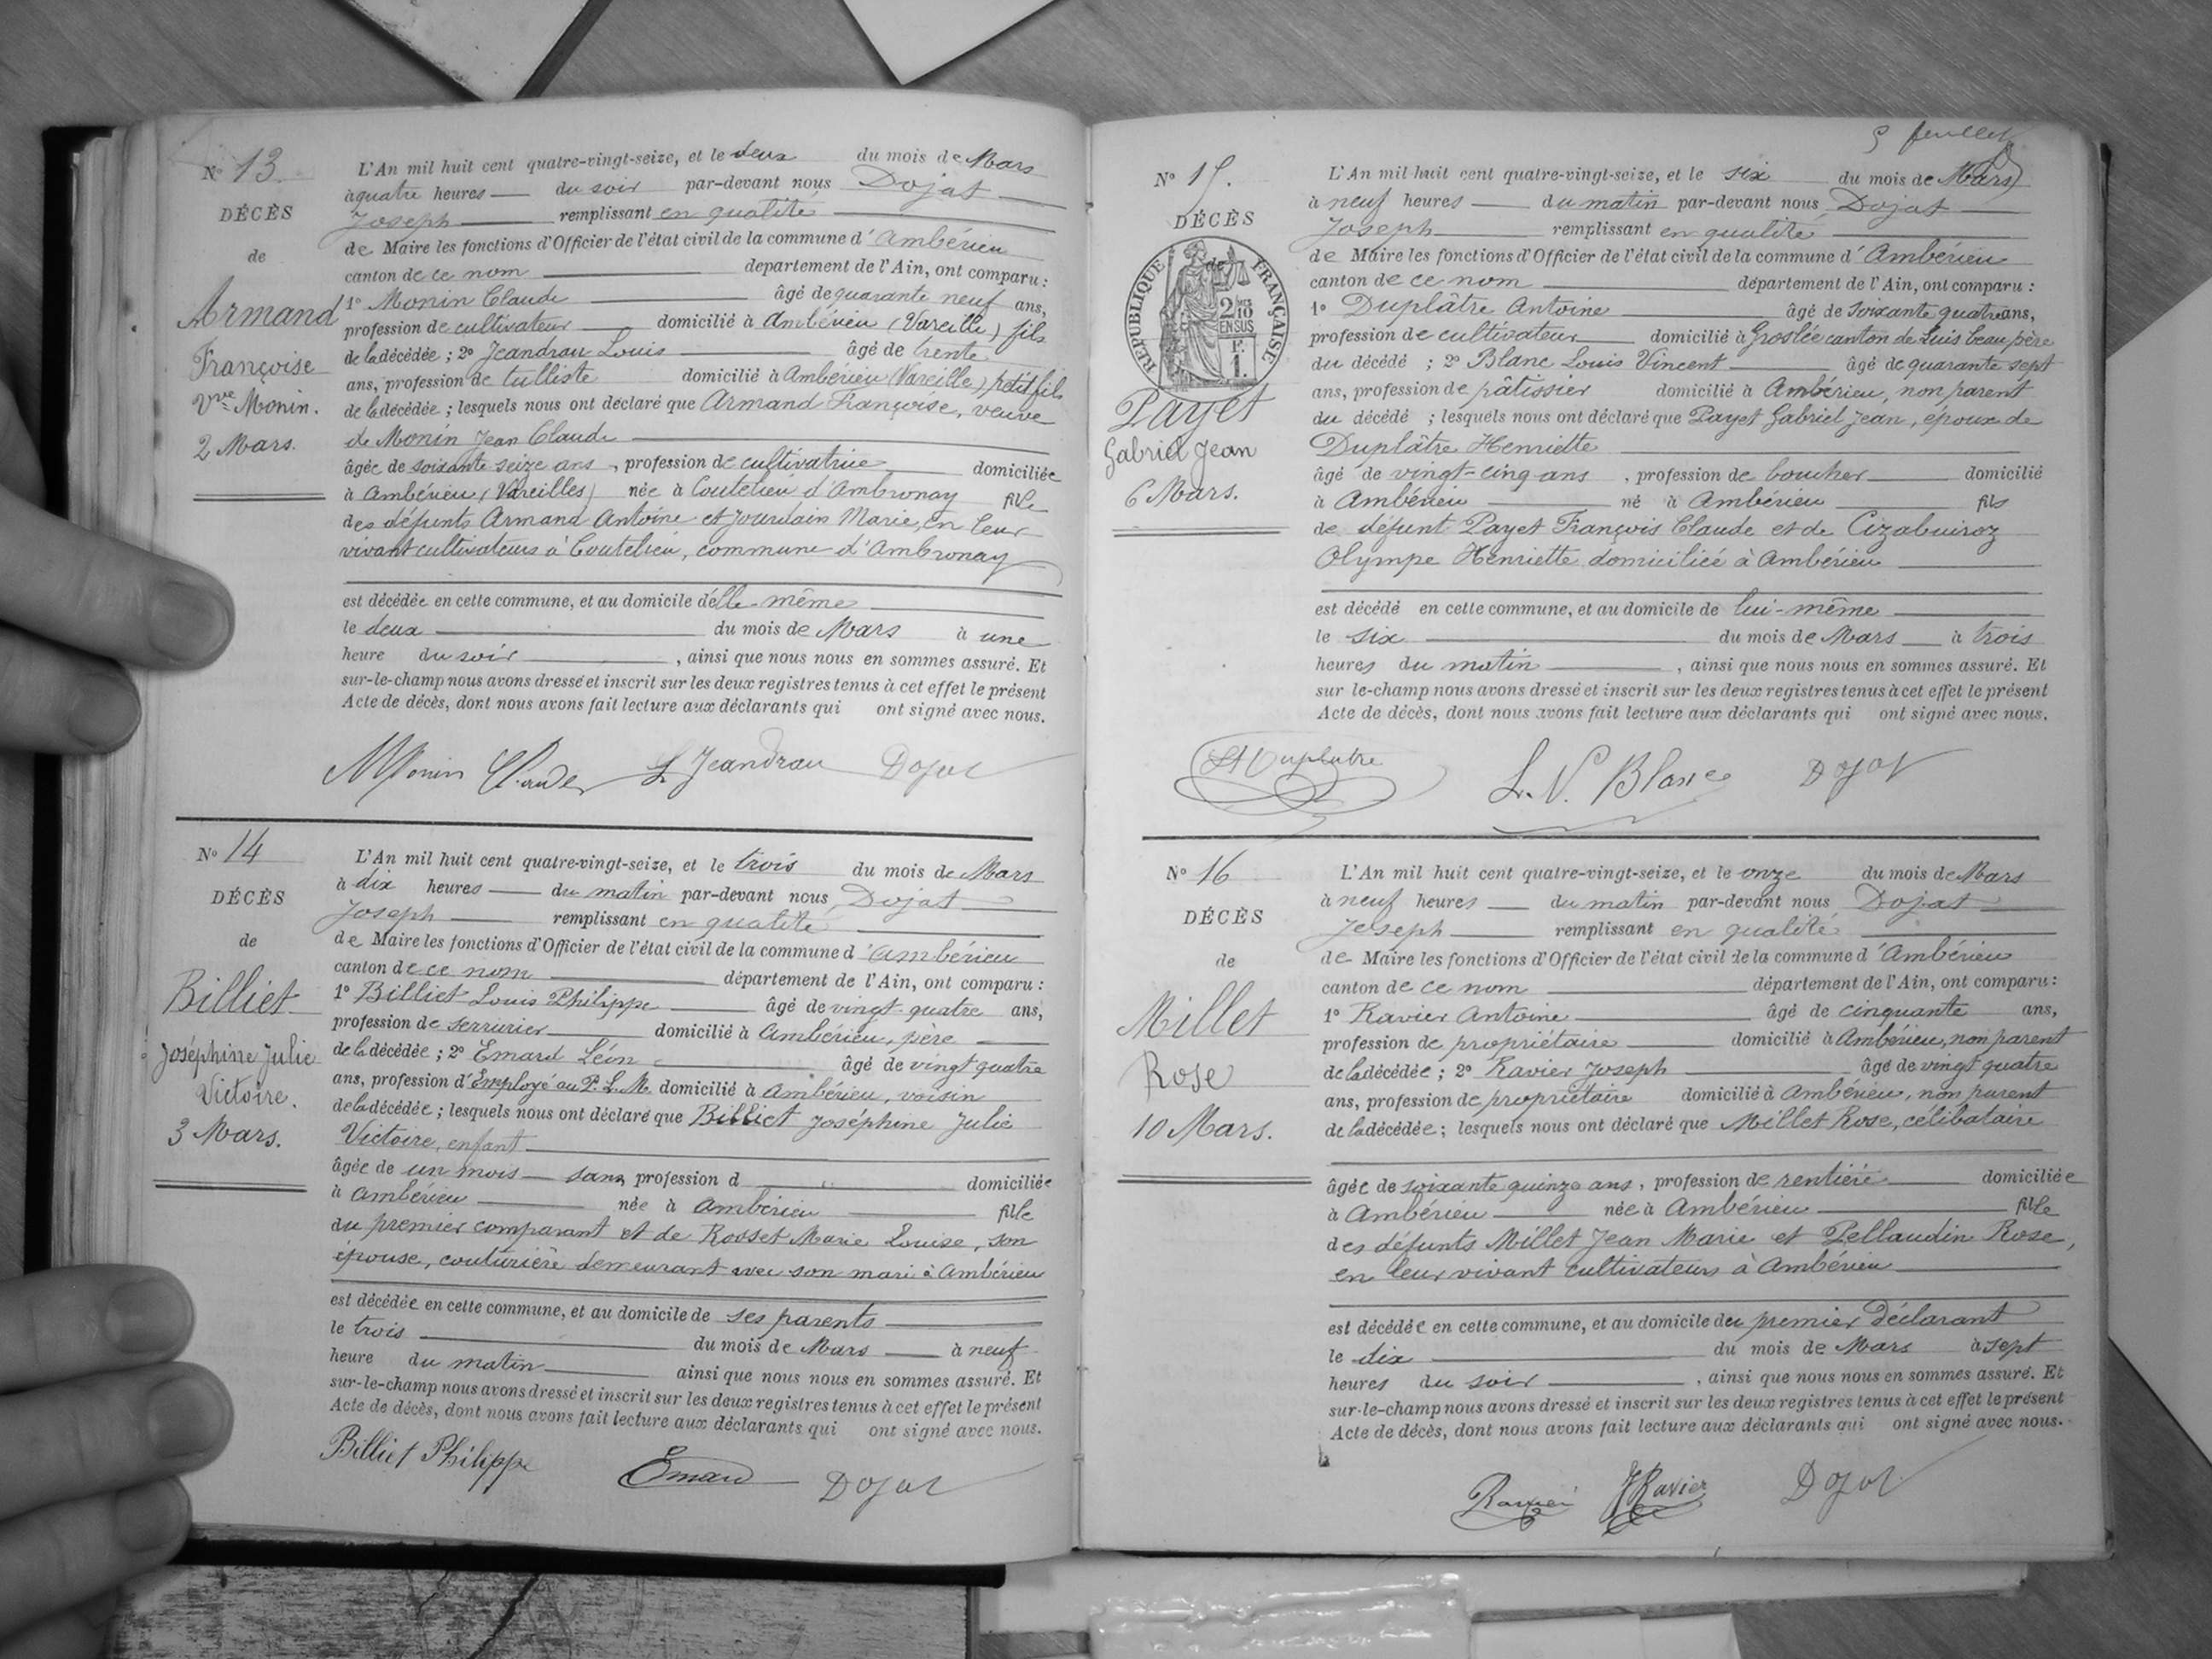 N° 13
DÉCÈS
de
Armand
Françoise
Vve Monin.
2 Mars.
L'An mil huit cent quatre-vingt-seize, et le deux du mois de Mars
à quatre heures du soir par-devant nous Dojat
Joseph remplissant en qualité
de Maire les fonctions d'Officier de l'état civil de la commune d'Ambérieu
canton de ce nom departement de l'Ain, ont comparu :
1° Monin Claude âgé de quarante neuf ans,
profession de cultivateur domicilié à Ambérieu (Vareille) fils
de la décédée ; 2° Jeandrau Louis âgé de trente
ans, profession de tulliste domicilié à Ambérieu (Vareille) petit fils
de la décédée ; lesquels nous ont déclaré que Armand Françoise, veuve
de Monin Jean Claude
âgée de soixante seize ans, profession de cultivatrice domiciliée
à Ambérieu (Vareilles) née à Coutelieu d'Ambronay fille
des défunts Armand Antoine et Jourdain Marie, en leur
vivant cultivateurs à Coutelieu, commune d'Ambronay
est décédée en cette commune, et au domicile d'elle-même
le deux du mois de Mars à une
heure du soir, ainsi que nous nous en sommes assuré. Et
sur-le-champ nous avons dressé et inscrit sur les deux registres tenus à cet effet le présent
Acte de décès, dont nous avons fait lecture aux déclarants qui ont signé avec nous.
Monin Claude L Jeandrau Dojat
N° 14
DÉCÈS
de
Billiet
Joséphine Julie
Victoire.
3 Mars.
L'An mil huit cent quatre-vingt-seize, et le trois du mois de Mars
à dix heures du matin par-devant nous Dojat
Joseph remplissant en qualité
de Maire les fonctions d'Officier de l'état civil de la commune d'Ambérieu
canton de ce nom département de l'Ain, ont comparu :
1° Billiet Louis Philippe âgé de vingt-quatre ans,
profession de serrurier domicilié à Ambérieu, père
de la décédée ; 2° Emard Léon âgé de vingt quatre
ans, profession d'Employé au P. L. M. domicilié à Ambérieu, voisin
de la décédée ; lesquels nous ont déclaré que Billiet Joséphine Julie
Victoire, enfant
âgée de un mois sans profession d domiciliée
à Ambérieu née à Ambérieu fille
du premier comparant et de Rosset Marie Louise, son
épouse, couturière demeurant avec son mari à Ambérieu
est décédée en cette commune, et au domicile de ses parents
le trois du mois de Mars à neuf
heure du matin ainsi que nous nous en sommes assuré. Et
sur-le-champ nous avons dressé et inscrit sur les deux registres tenus à cet effet le présent
Acte de décès, dont nous avons fait lecture aux déclarants qui ont signé avec nous.
Billiet Philippe Emard Dojat
5 feuillet
N° 15.
DÉCÈS
de
RÉPUBLIQUE FRANÇAISE
2/10 EN SUS
F. 1.
Payet
Gabriel Jean
6 Mars.
L'An mil huit cent quatre-vingt-seize, et le six du mois de Mars
à neuf heures du matin par-devant nous Dojat
Joseph remplissant en qualité
de Maire les fonctions d'Officier de l'état civil de la commune d'Ambérieu
canton de ce nom département de l'Ain, ont comparu :
1° Duplâtre Antoine âgé de soixante quatre ans,
profession de cultivateur domicilié à Groslée canton de Luis beau père
du décédé ; 2° Blanc Louis Vincent âgé de quarante sept
ans, profession de pâtissier domicilié à Ambérieu, non parent
du décédé ; lesquels nous ont déclaré que Payet Gabriel Jean, époux de
Duplâtre Henriette
âgé de vingt-cinq ans, profession de boucher domicilié
à Ambérieu né à Ambérieu fils
de défunt Payet François Claude et de Cizabuiroz
Olympe Henriette domiciliée à Ambérieu
est décédé en cette commune, et au domicile de lui-même
le six du mois de Mars à trois
heures du matin, ainsi que nous nous en sommes assuré. Et
sur le-champ nous avons dressé et inscrit sur les deux registres tenus à cet effet le présent
Acte de décès, dont nous avons fait lecture aux déclarants qui ont signé avec nous.
Duplatre L. V. Blanc Dojat
N° 16
DÉCÈS
de
Millet
Rose
10 Mars.
L'An mil huit cent quatre-vingt-seize, et le onze du mois de Mars
à neuf heures du matin par-devant nous Dojat
Joseph remplissant en qualité
de Maire les fonctions d'Officier de l'état civil de la commune d'Ambérieu
canton de ce nom département de l'Ain, ont comparu :
1° Ravier Antoine âgé de cinquante ans,
profession de propriétaire domicilié à Ambérieu, non parent
de la décédée ; 2° Ravier Joseph âgé de vingt quatre
ans, profession de propriétaire domicilié à Ambérieu, non parent
de la décédée ; lesquels nous ont déclaré que Millet Rose, célibataire
âgée de soixante quinze ans, profession de rentière domiciliée
à Ambérieu née à Ambérieu fille
des défunts Millet Jean Marie et Pellaudin Rose,
en leur vivant cultivateurs à Ambérieu
est décédée en cette commune, et au domicile du premier Déclarant
le dix du mois de Mars à sept
heures du soir, ainsi que nous nous en sommes assuré. Et
sur-le-champ nous avons dressé et inscrit sur les deux registres tenus à cet effet le présent
Acte de décès, dont nous avons fait lecture aux déclarants qui ont signé avec nous.
Ravier J Ravier Dojat